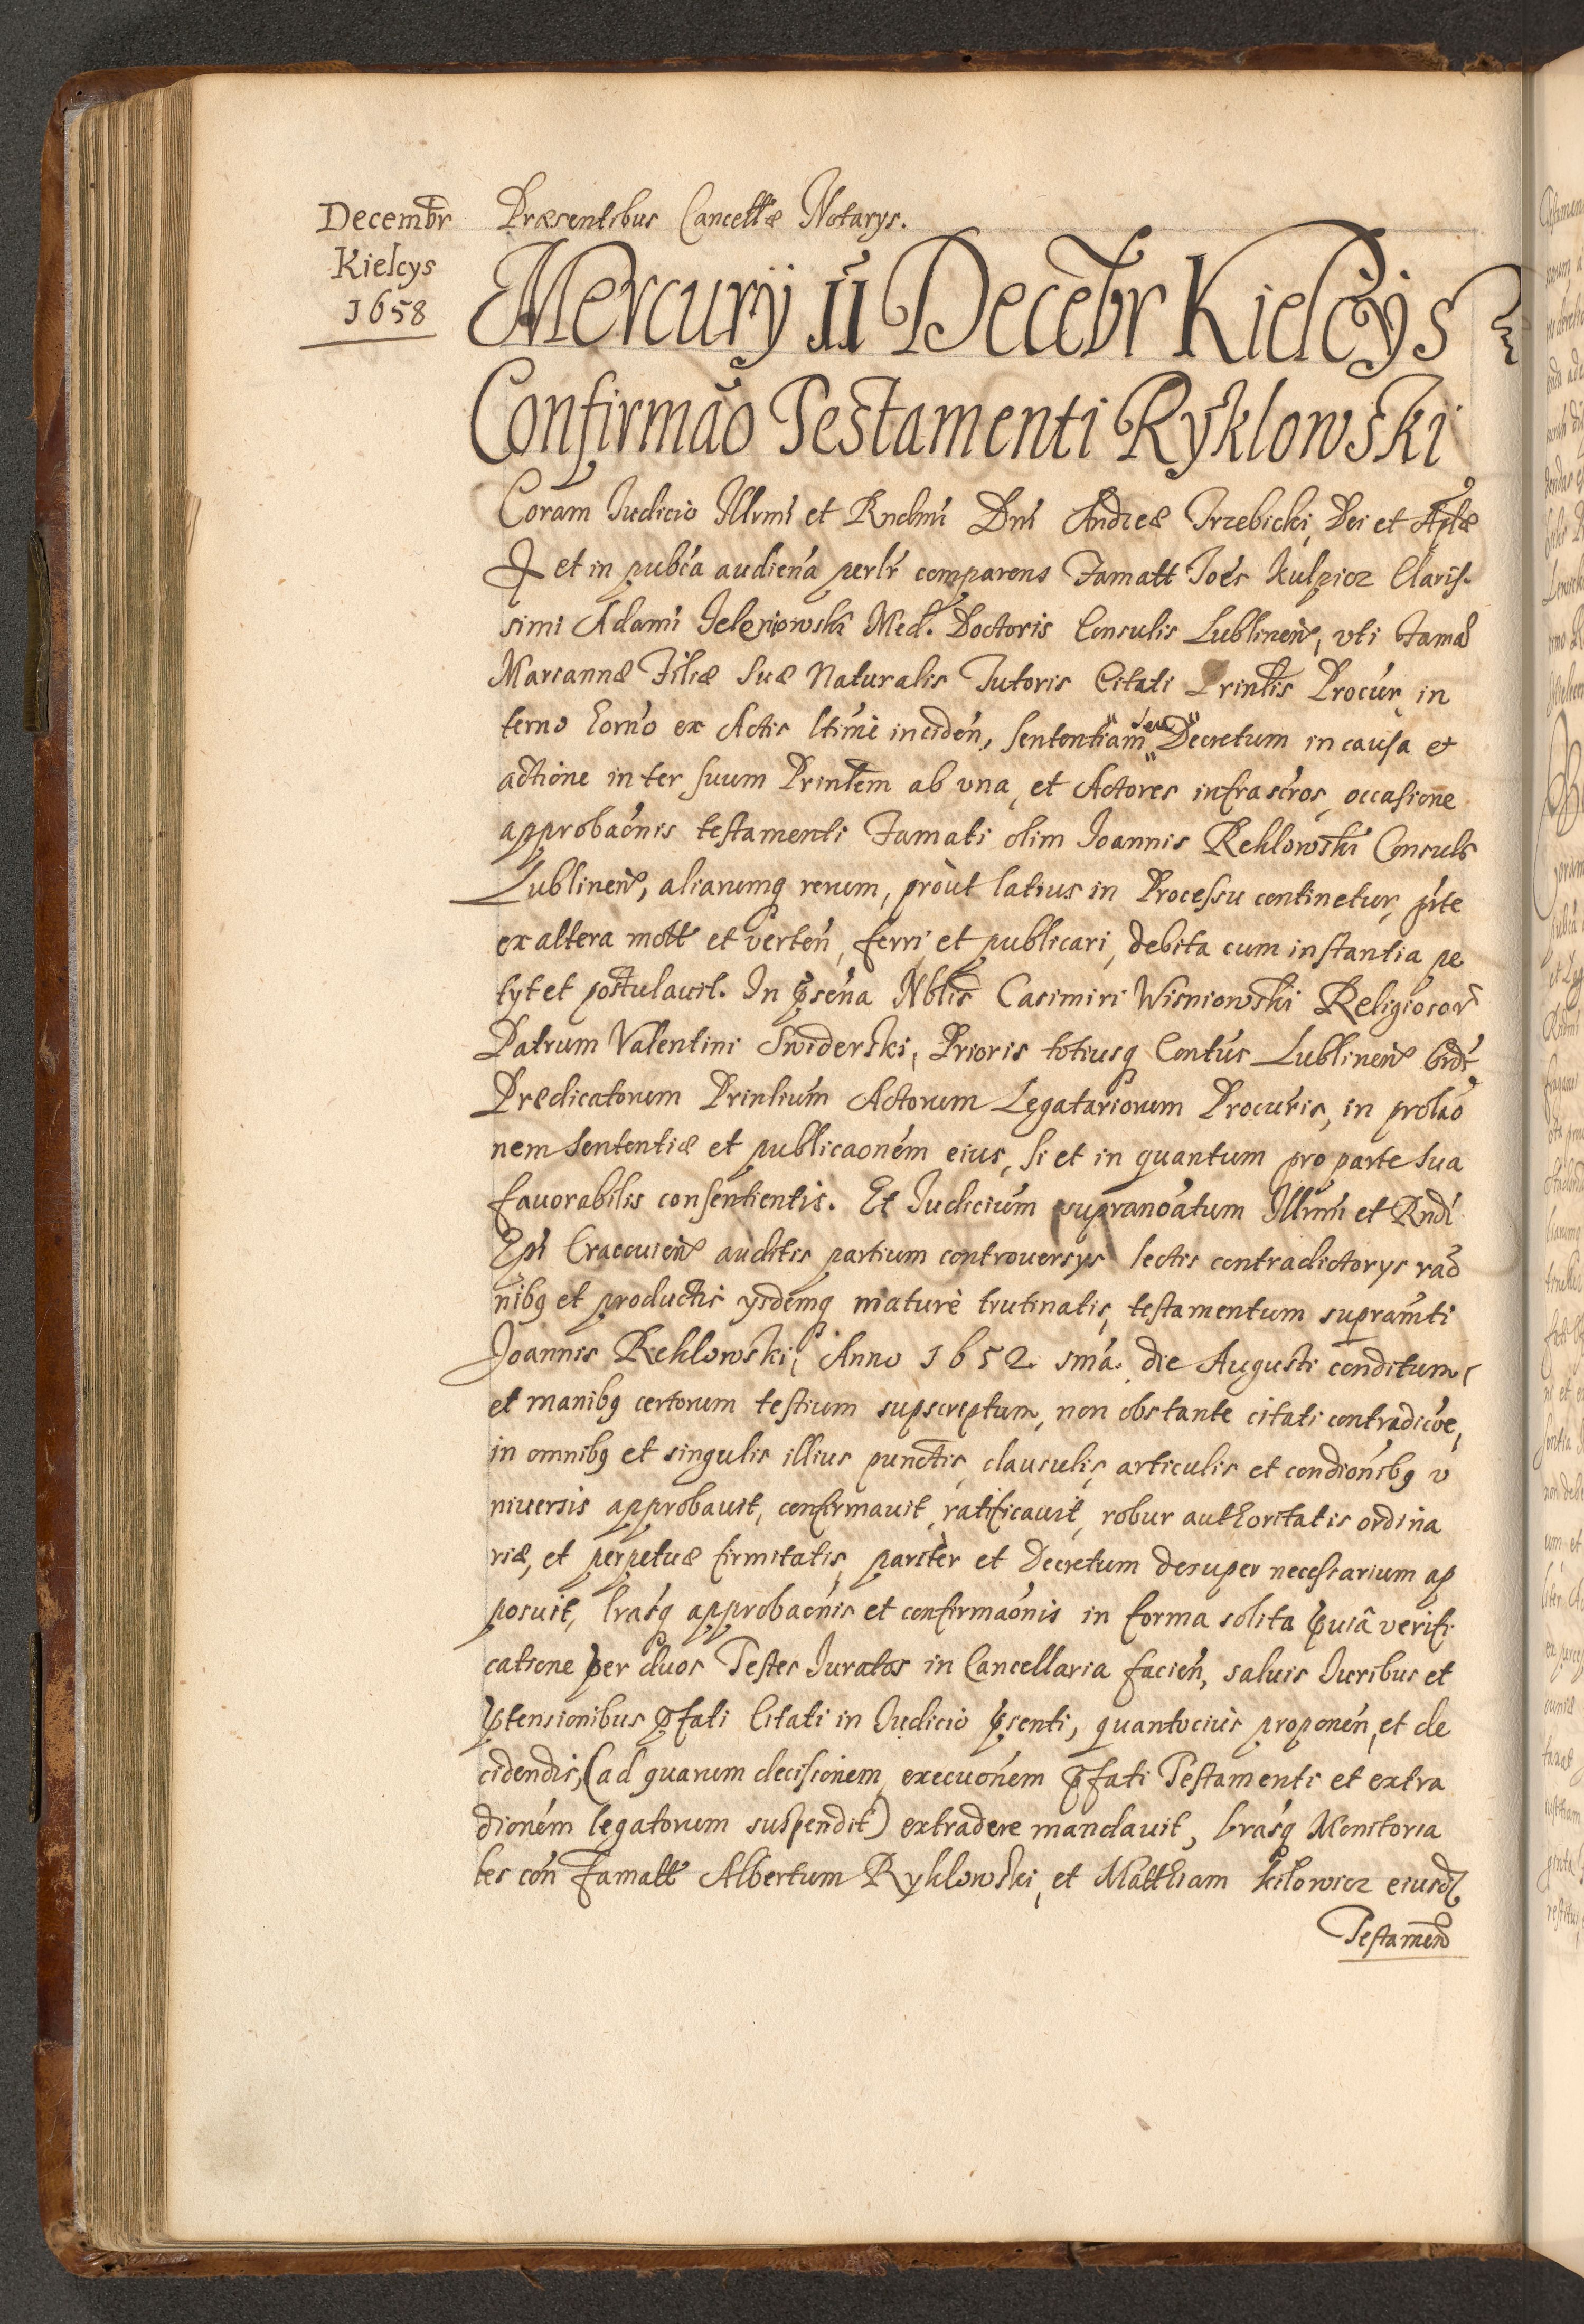 Decembr
Kielcys
1658
Præsentibus Cancellæ Notarys.
Mercurÿ 11 Decēbr Kielcÿs
Confirmāo Testamenti Ryklowski
Coram Iudicio Illrmi et Rndmi Dni Andreæ Trzebicki, Dei et Aplæ
et in pubca audiena perlr comparens Famatt Ioes Kulpicz Claris-
simi Adami Meḋ. Doctoris Consulis Lublinen, vti Famaæ
Mariannæ Filiæ Suæ Naturalis Tutoris Citati Printis Procur, in
termo horno ex Actis ltimè inciden, Sententiam seu Decretum in causa et
actione inter suum Printem ab vna, et Actores infrascros, occasione
approbaonis testamenti Famati olim Ioannis Reklowski Consulis
Lublinen, aliarumq rerum, proùt latius in Processu continetur, prte
ex altera mott et verten, ferri et publicari, debita cum instantia pe
tyt et postulauit. In psena Nblis Casimiri Wisniowski Religiosor
Patrum Valentini Swiderski, Prioris totiusq Contus Lublinen Ordis
Prædicatorum Printium Actorum Legatariorum Procuris, in prolao
nem Sententiæ et publicaonem eius, si et in quantum pro parte sua
fauorabilis consentientis. Et Iudicium supranoatum Illmi et Rndi
Epi Cracouien auditis partium controuersys lectis contradictorys rao
nibq et productis ysdemq maturè trutinatis, testamentum supramti
Ioannis Reklowski, Anno 1652. 1ma. die Augusti conditum,
et manibq certorum testium supscreptum, non obstante citati contradicoe,
in omnibq et singulis illius punctis, clausulis, articulis et condionibq v
niuersis approbauit, confirmauit, ratificauit, robur authoritatis ordina
riæ, et perpetuæ firmitatis, paritèr et Decretum desuper necessarium ap
posuit, lrasq approbaonis et confirmaonis in forma solita puiâ verifi
catione per duos Testes Iuratos in Cancellaria facien, saluis Iuribus et
ptensionibus pfati Citati in Iudicio psenti, quantociùs proponen, et de
cidendis, (ad quarum decisionem, execuonem pfati Testamenti et extra
dionem legatorum suspendit) extradere mandauit, lrasq Monitoria
les con Famatt Albertum Ryklowski, et Matthiam Kilowicz eiusd
Testamen